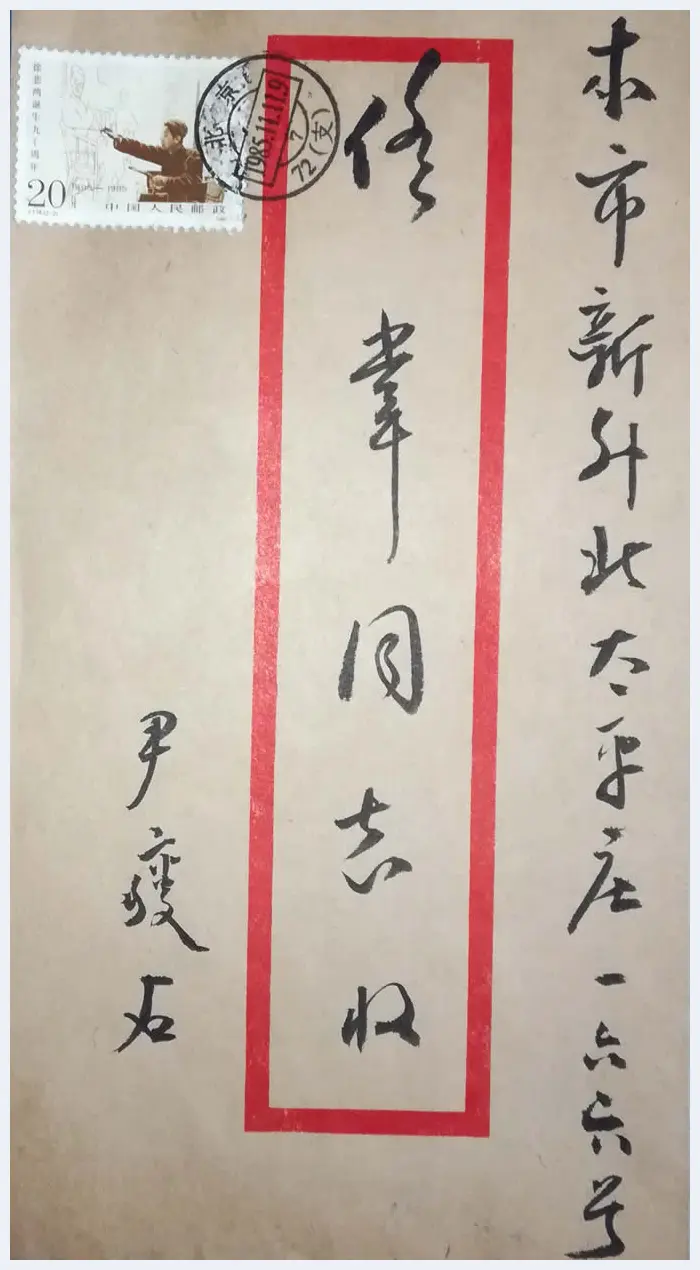 本市新外北太平庄一六六号
佟韋同志收
尹瘦石
徐悲鸿诞生九十周年
20分
1895—1985
中国人民邮政
北京
1985.11.11.9
7
72(支)